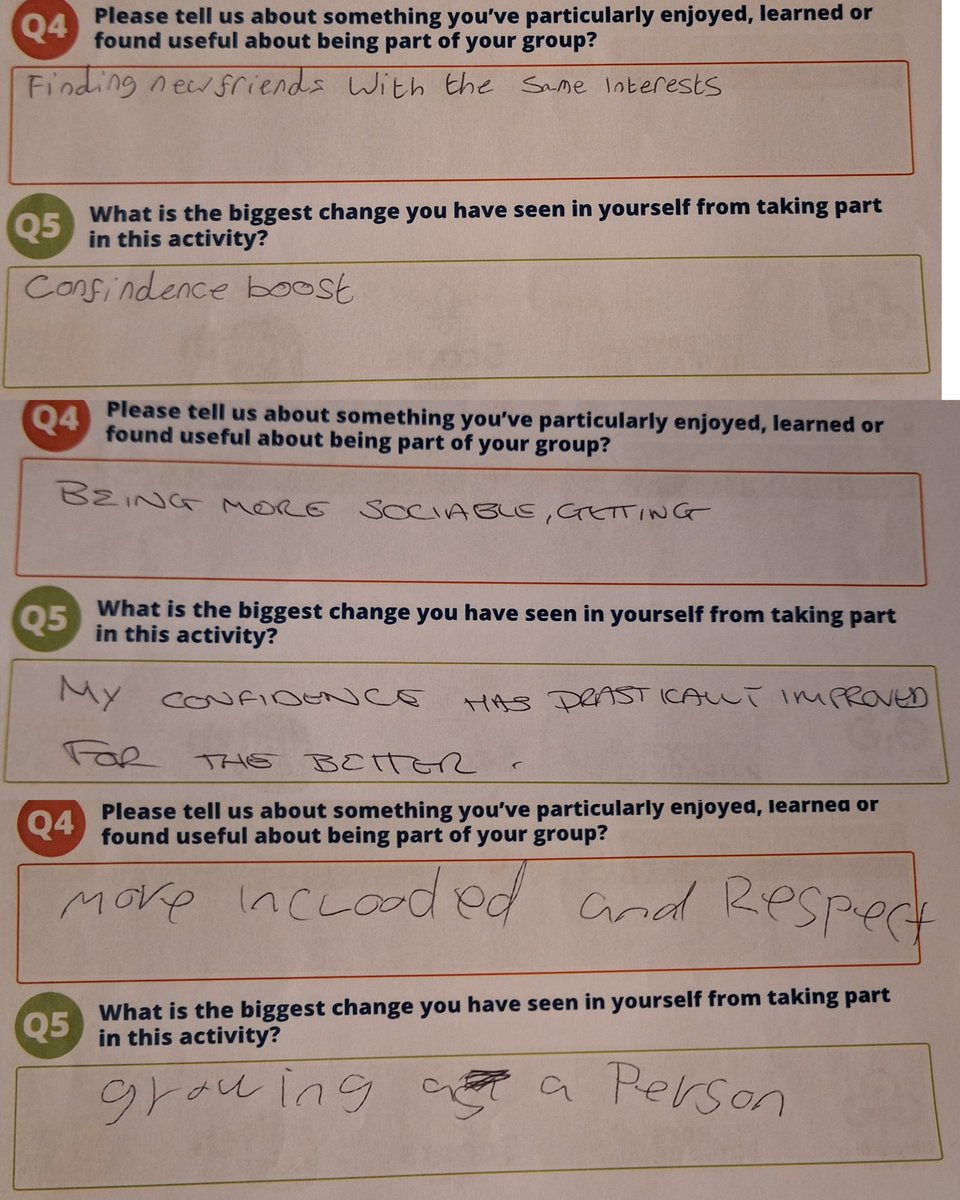 Q4 Please tell us about something you've particularly enjoyed, learned or
found useful about being part of your group?
Finding new friends With the Same Interests
Q5 What is the biggest change you have seen in yourself from taking part
in this activity?
Confindence boost
Q4 Please tell us about something you've particularly enjoyed, learned or
found useful about being part of your group?
BEING MORE SOCIABLE, GETTING
Q5 What is the biggest change you have seen in yourself from taking part
in this activity?
MY CONFIDENCE HAS DRASTICALLY IMPROVED
FOR THE BETTER.
Q4 Please tell us about something you've particularly enjoyed, learned or
found useful about being part of your group?
More incLooded and Respect
Q5 What is the biggest change you have seen in yourself from taking part
in this activity?
growing as a Person